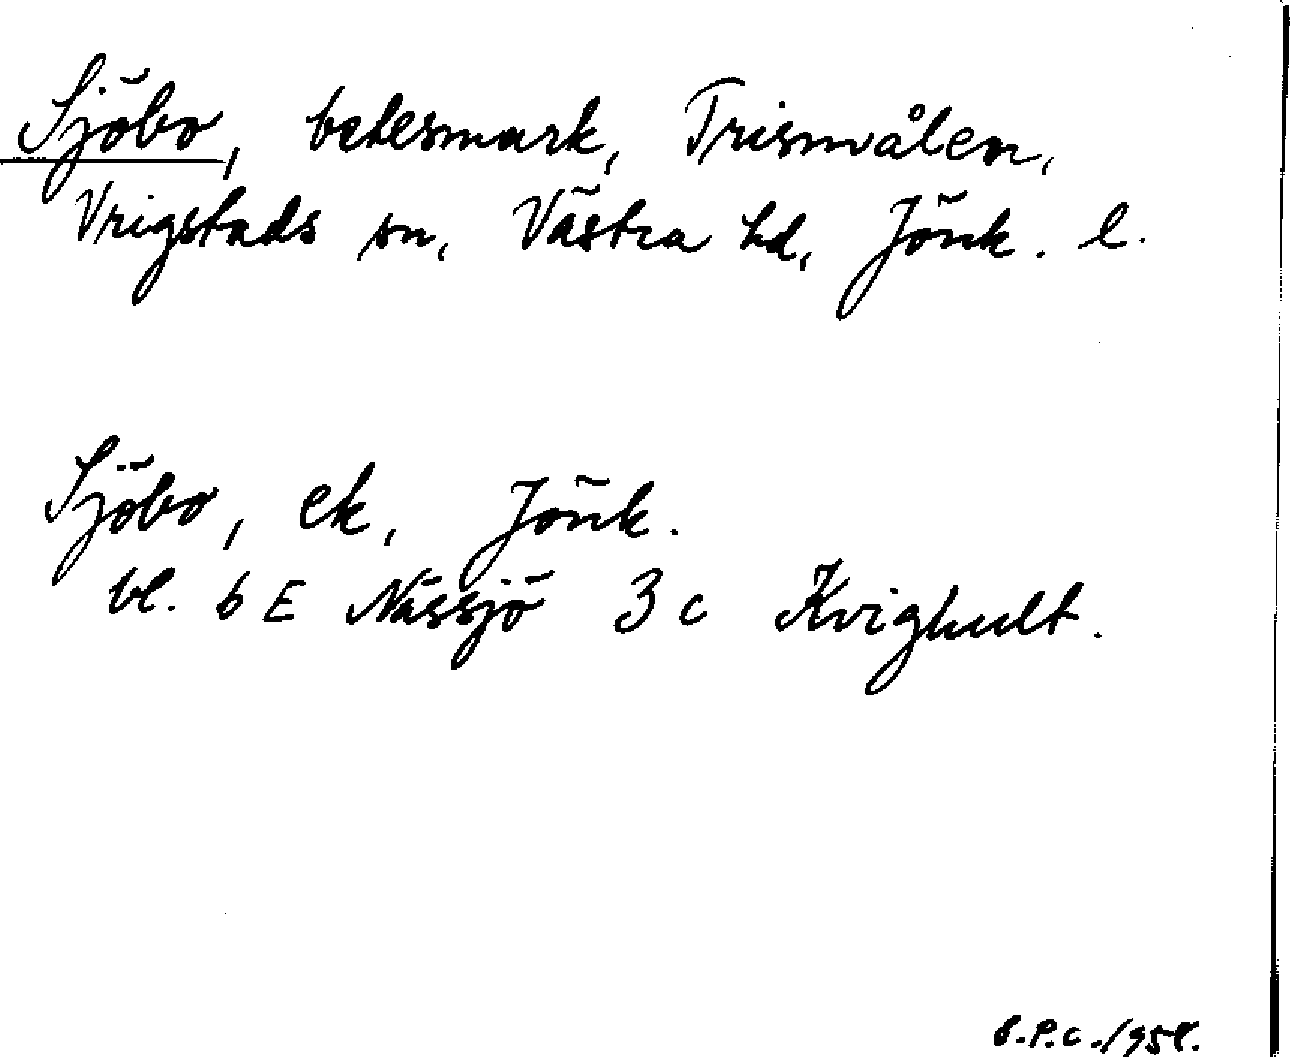 Sjöbo, betesmark, Trismvålen,
Vrigstads sn, Västra hd, Jönk. l.
Sjöbo, ek, Jönk.
bl. 6 E Nässjö 3 c Kvighult.
B.P.C. 1958.